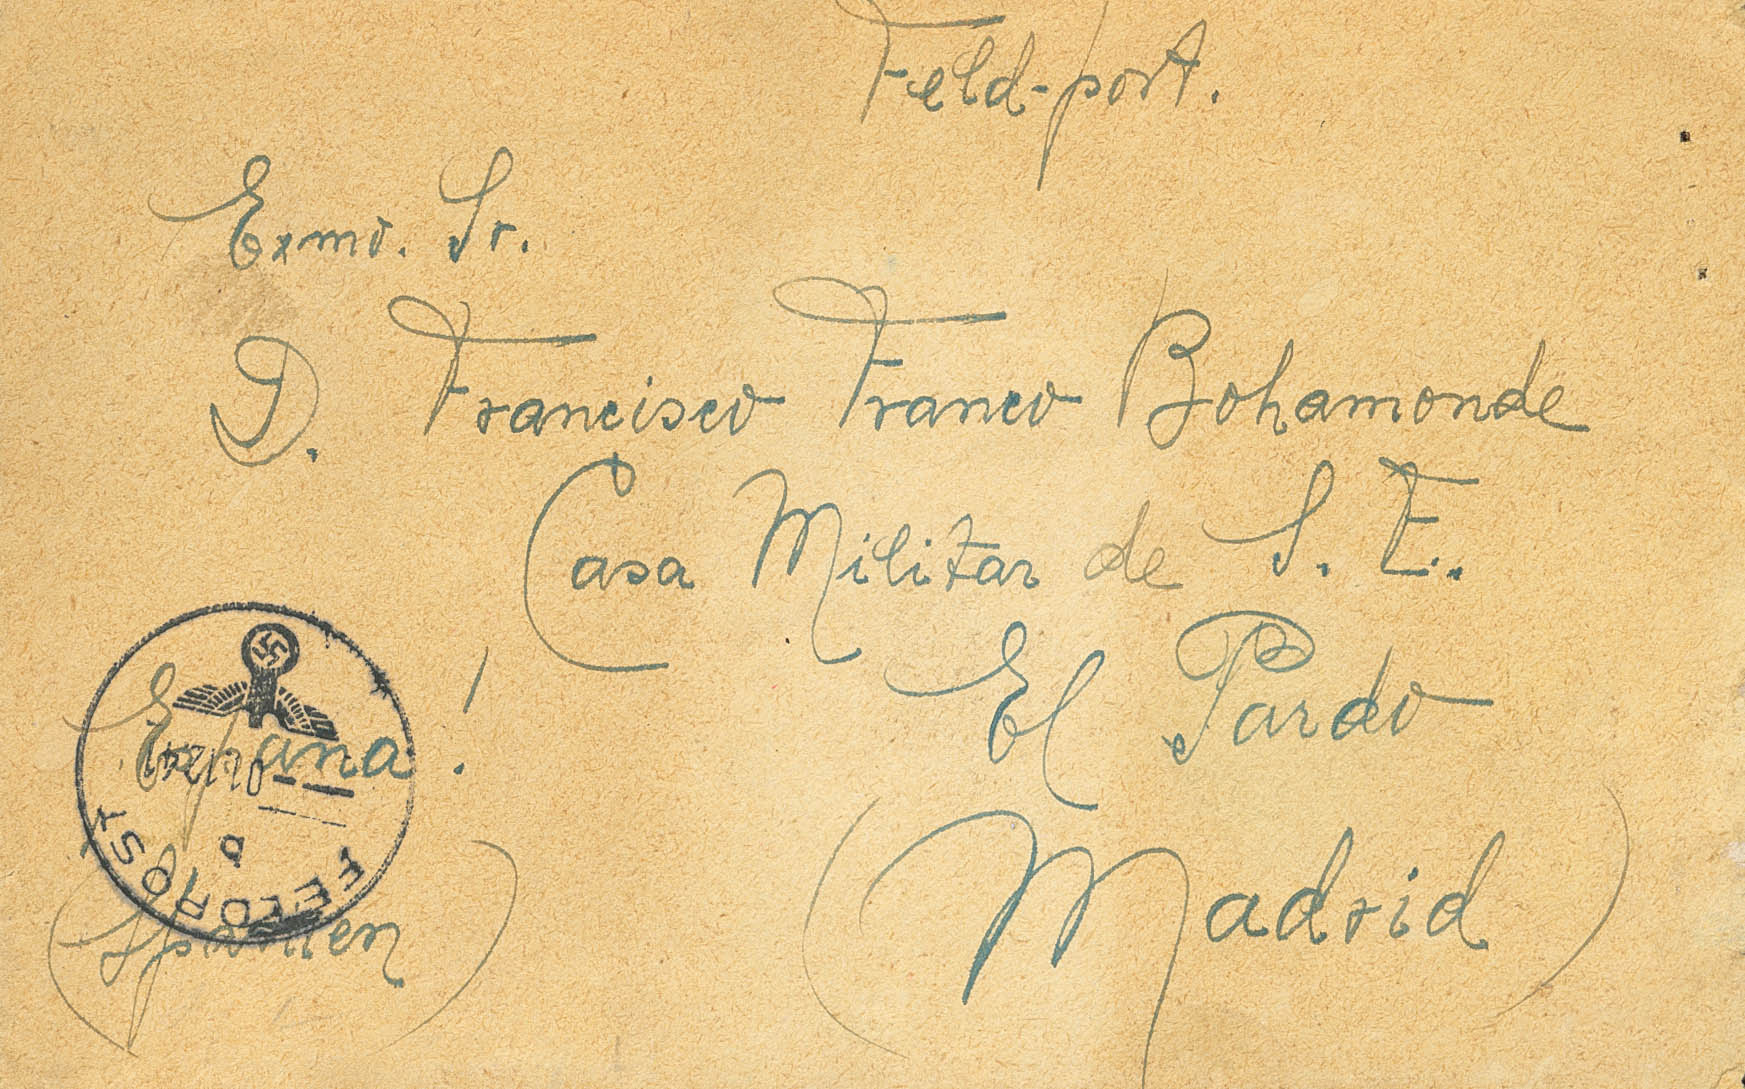 Feld-post.
Exmo. Sr.
D. Francisco Franco Bohamonde
Casa Militar de S. E..
El Pardo
España!
(Madrid)
(Spanien)
FELDPOST